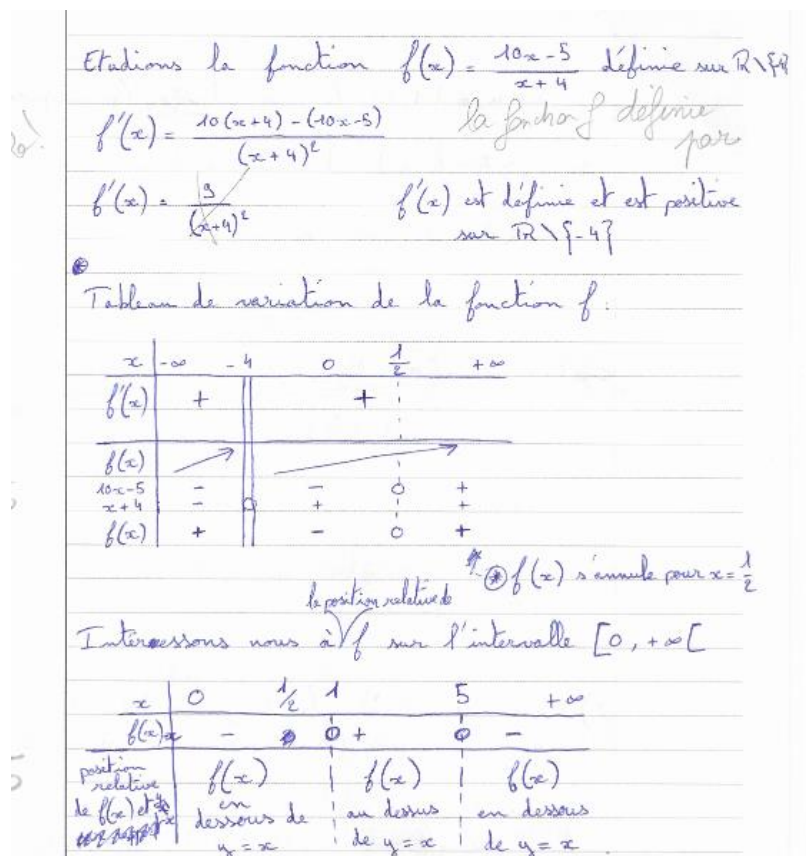 Etudions la fonction f(x) = (10x-5)/(x+4) définie sur ℝ\{-4}
la fonction f définie
par
f'(x) = (10(x+4) - (10x-5))/(x+4)²
f'(x) = 9/(x+4)² f'(x) est définie et est positive
sur ℝ\{-4}
Tableau de variation de la fonction f.
x -∞ -4 0 1/2 +∞
f'(x) + +
f(x)
10x-5 - - 0 +
x+4 - 0 + +
f(x) + - 0 +
* f(x) s'annule pour x = 1/2
la position relative de
Interessons nous à f sur l'intervalle [0, +∞[
x 0 1/2 1 5 +∞
f(x)-x - 0 + 0 -
position relative de f(x) et x
f(x) en dessous de y = x
f(x) au dessus de y = x
f(x) en dessous de y = x